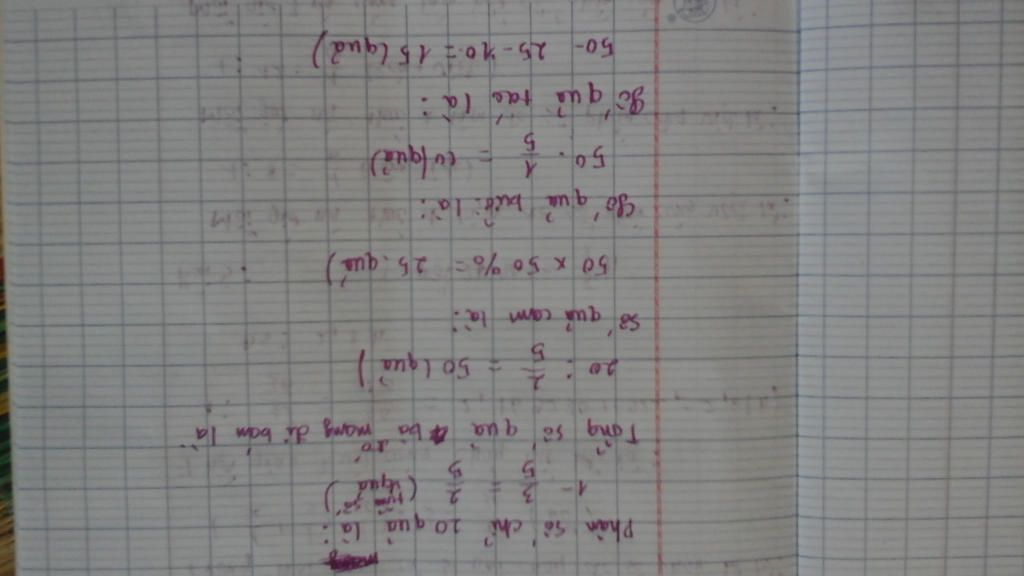 Phân số chỉ 20 quả là:
1 - 3/5 = 2/5 (tổng số quả)
Tổng số quả bà mang đi bán là
20 : 2/5 = 50 (quả)
Số quả cam là:
50 x 50% = 25 (quả)
Số quả bưởi là:
50 . 1/5 = 10 (quả)
Số quả táo là:
50 - 25 - 10 = 15 (quả)